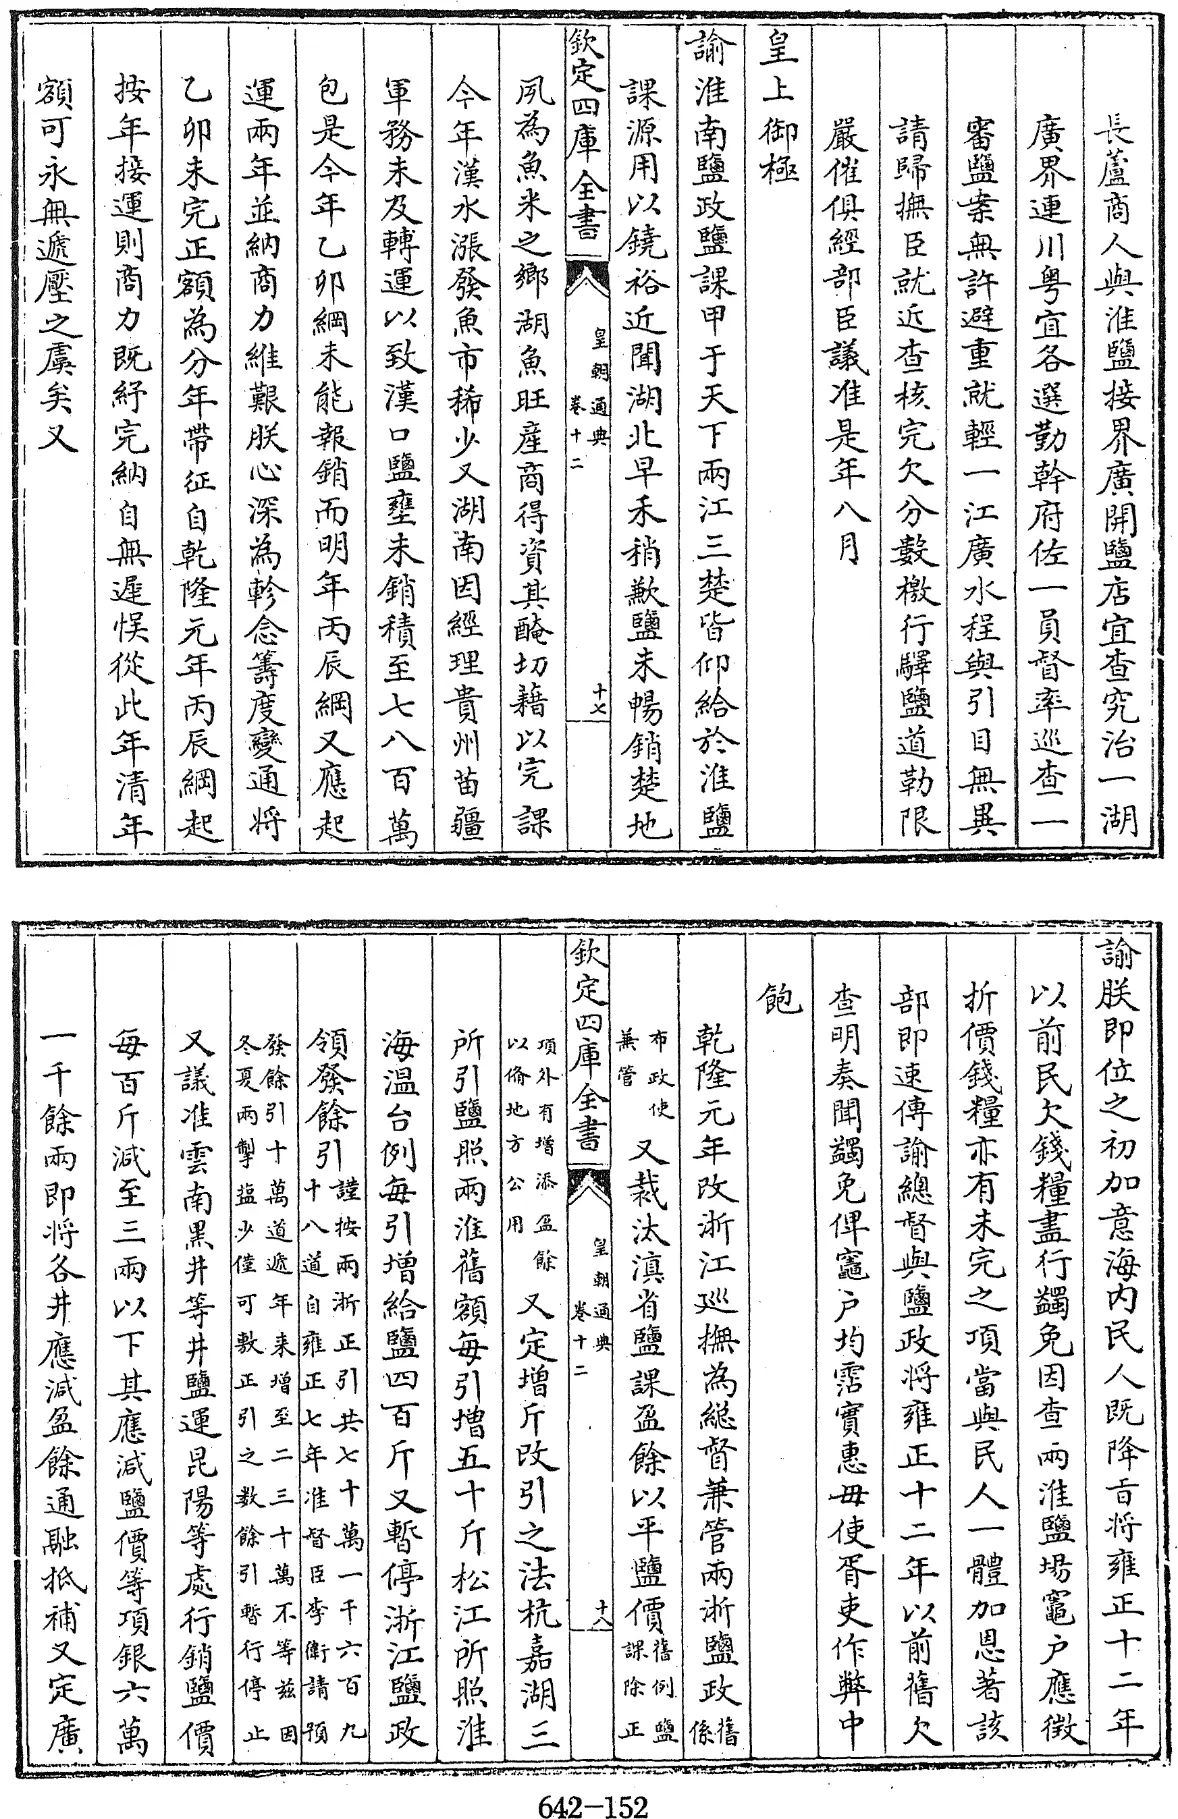 長蘆商人與淮鹽接界廣開鹽店宜查究治一湖
廣界連川粤宜各選勤幹府佐一員督率巡查一
審鹽案無許避重就輕一江廣水程與引目無異
請歸撫臣就近查核完欠分數檄行驛鹽道勒限
嚴催俱經部臣議准是年八月
皇上御極
諭淮南鹽政鹽課甲于天下兩江三楚皆仰給於淮鹽
課源用以饒裕近聞湖北早禾稍歉鹽未暢銷楚地
欽定四庫全書
皇朝通典
卷十二
十七
夙為魚米之鄉湖魚旺産商得資其醃切藉以完課
今年漢水漲發魚市稀少又湖南因經理貴州苗疆
軍務未及轉運以致漢口鹽壅未銷積至七八百萬
包是今年乙卯綱未能報銷而明年丙辰綱又應起
運兩年並納商力維艱朕心深為軫念籌度變通將
乙卯未完正額為分年帶征自乾隆元年丙辰綱起
按年接運則商力既紓完納自無遲悮從此年清年
額可永無遞壓之虞矣又
諭朕即位之初加意海内民人既降㫖將雍正十二年
以前民欠錢糧盡行蠲免因查兩淮鹽場竈户應徵
折價錢糧亦有未完之項當與民人一體加恩著該
部即速傳諭總督與鹽政將雍正十二年以前舊欠
查明奏聞蠲免俾竈户均霑實惠毋使胥吏作弊中
飽
乾隆元年改浙江巡撫為總督兼管兩浙鹽政舊係
布政使兼管又裁汰滇省鹽課盈餘以平鹽價舊例鹽課除正
欽定四庫全書
皇朝通典
卷十二
十八
項外有增添盈餘以備地方公用又定增斤改引之法杭嘉湖三
所引鹽照兩淮舊額每引增五十斤松江所照淮
海温台例每引增給鹽四百斤又暫停浙江鹽政
領發餘引謹按兩浙正引共七十萬一千六百九十八道自雍正七年准督臣李衛請預
發餘引十萬道遞年来增至二三十萬不等兹因冬夏兩掣鹽少僅可敷正引之數餘引暫行停止
又議准雲南黑井等井鹽運昆陽等處行銷鹽價
每百斤減至三兩以下其應減鹽價等項銀六萬
一千餘兩即將各井應減盈餘通融抵補又定廣
642-152